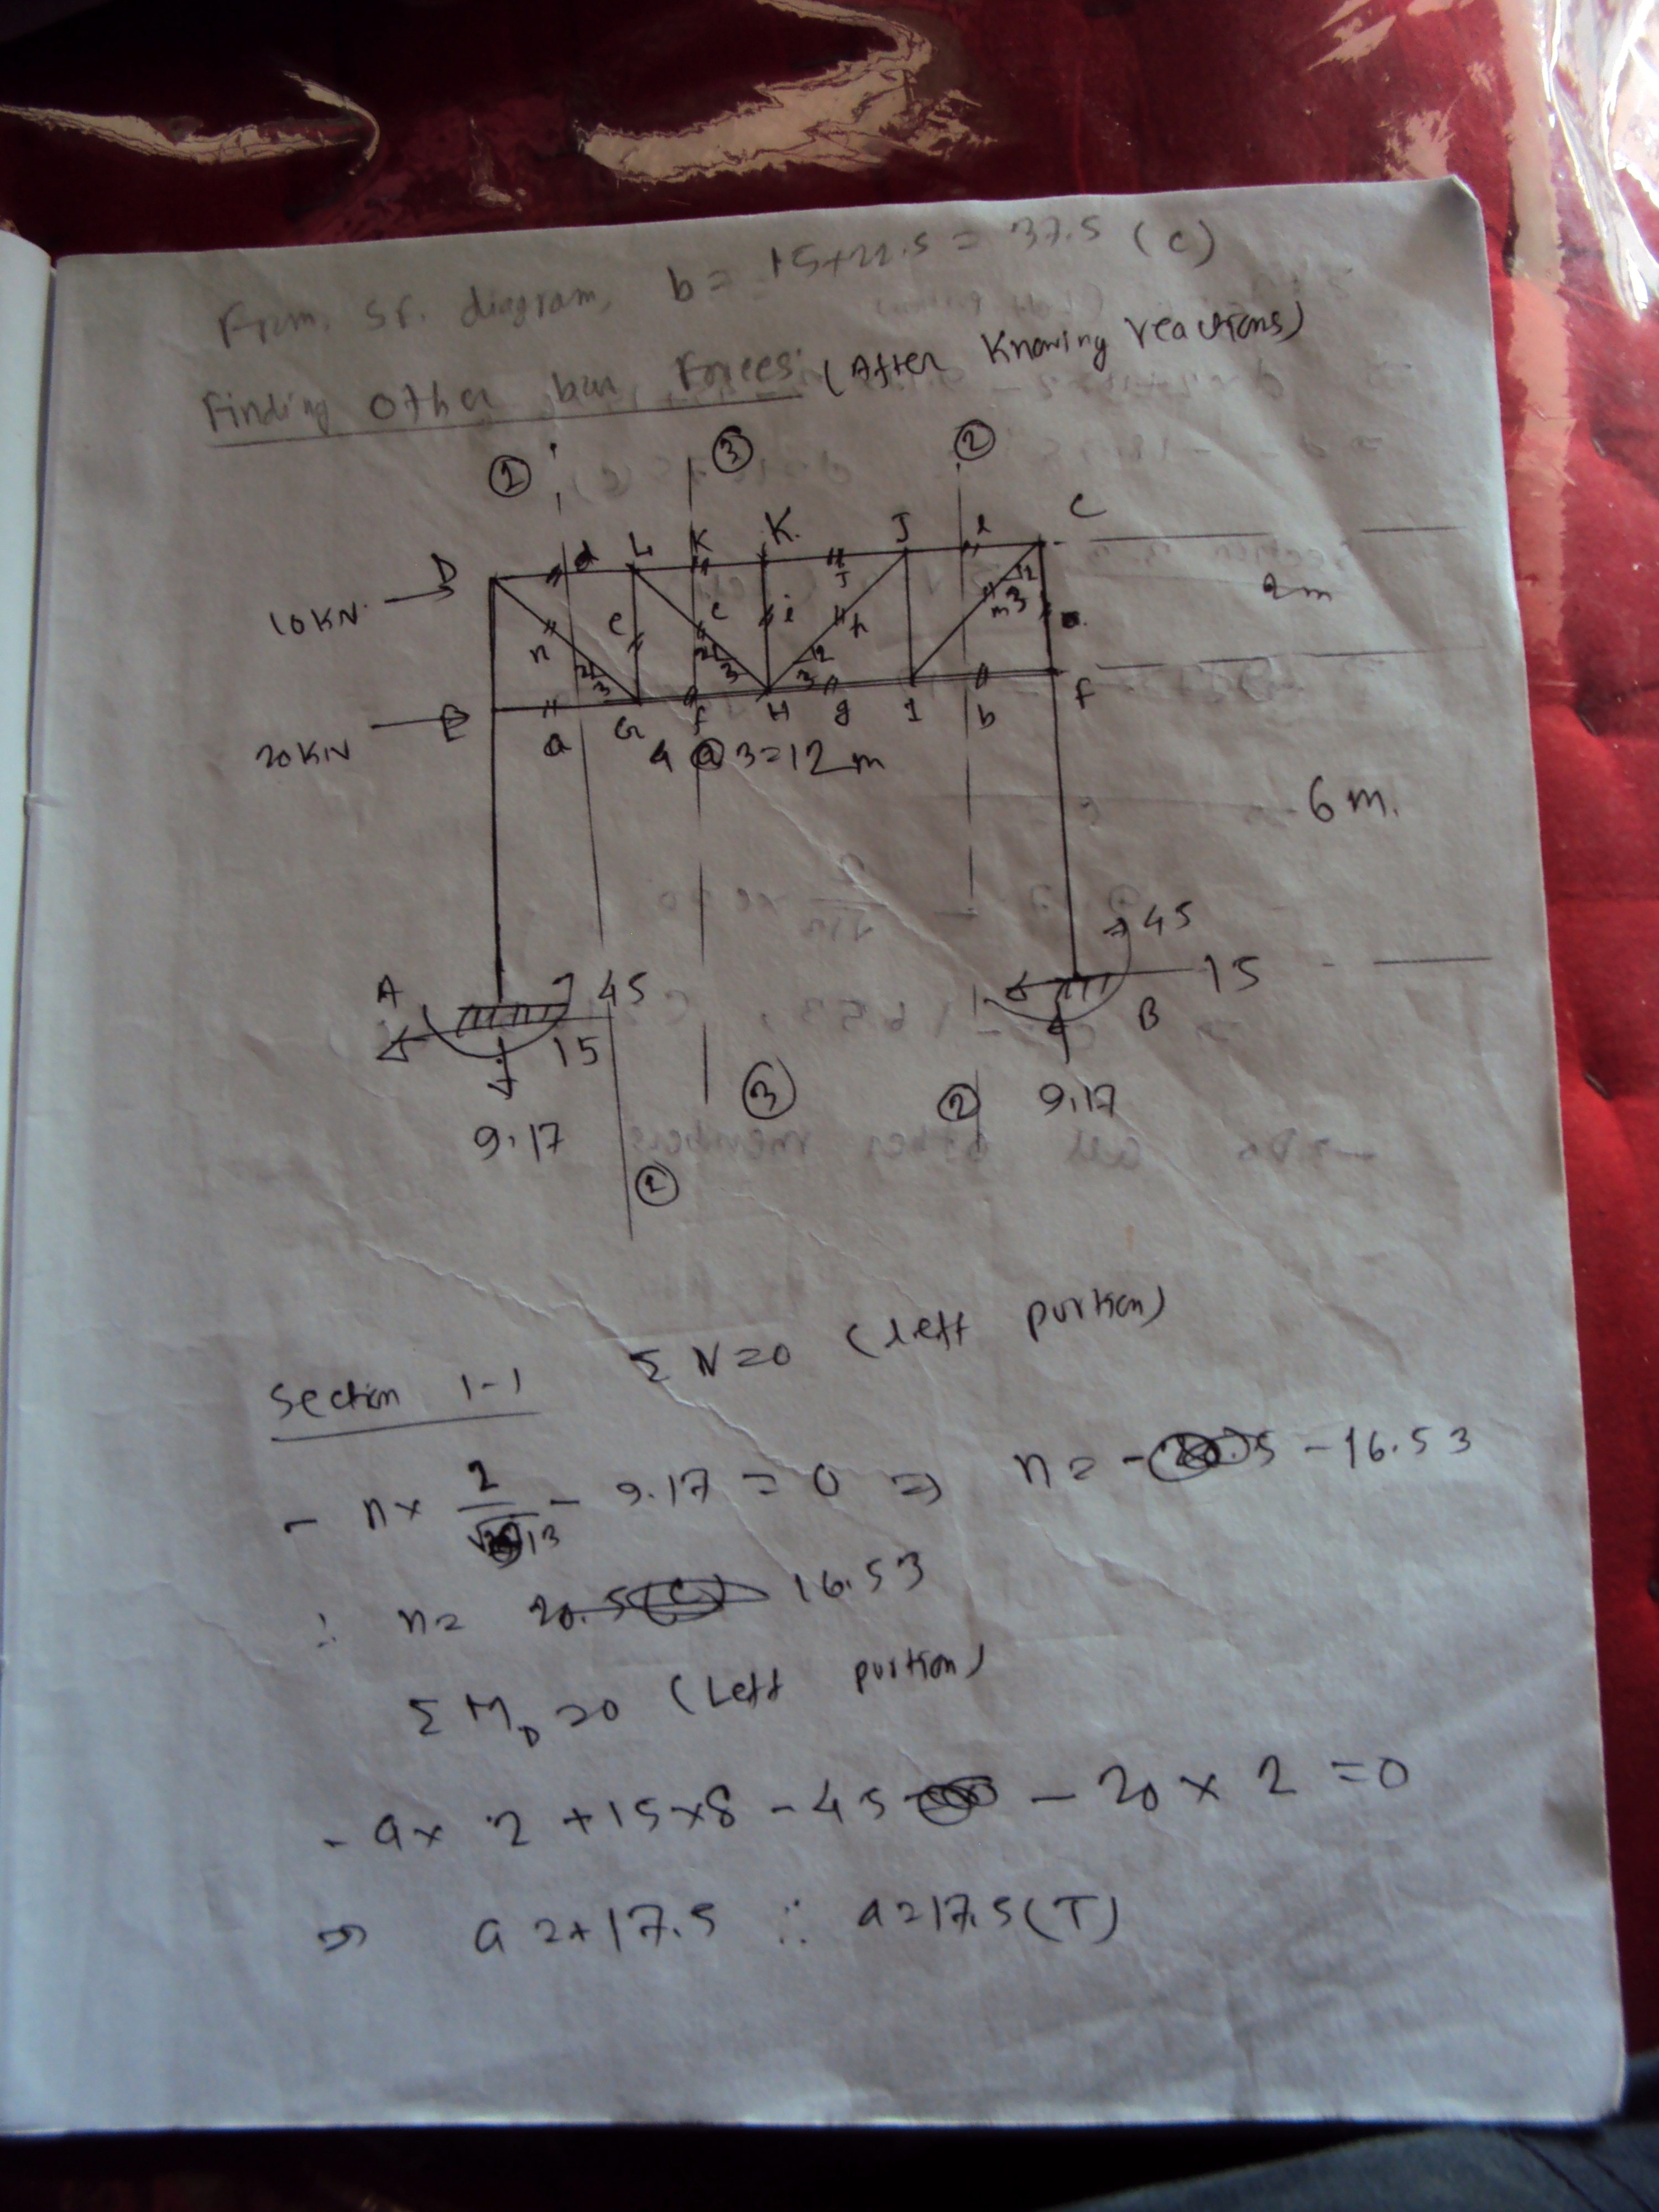 From. SF. diagram, b = 15+22.5 = 37.5 (C)
Finding other bar Forces: (After Knowing reactions)
② ③ ②
D d L K K. J l C
10KN. J 2m
n e c i h m o.
2 3 2 3 2 3 2 3
20KN E a G f H g I b F
4 @ 3=12m
6 m.
A 45 45
15 15
B
9.17 9.17
③ ②
②
Section 1-1 Σ V=0 (left portion)
- n× 2/√13 - 9.17 = 0 ⇒ n = - 16.53
∴ n= 20.5(C) 16.53
Σ M_D =0 (Left portion)
- a× 2 +15×8 -45 - 20 × 2 =0
⇒ a = +17.5 ∴ a=17.5(T)